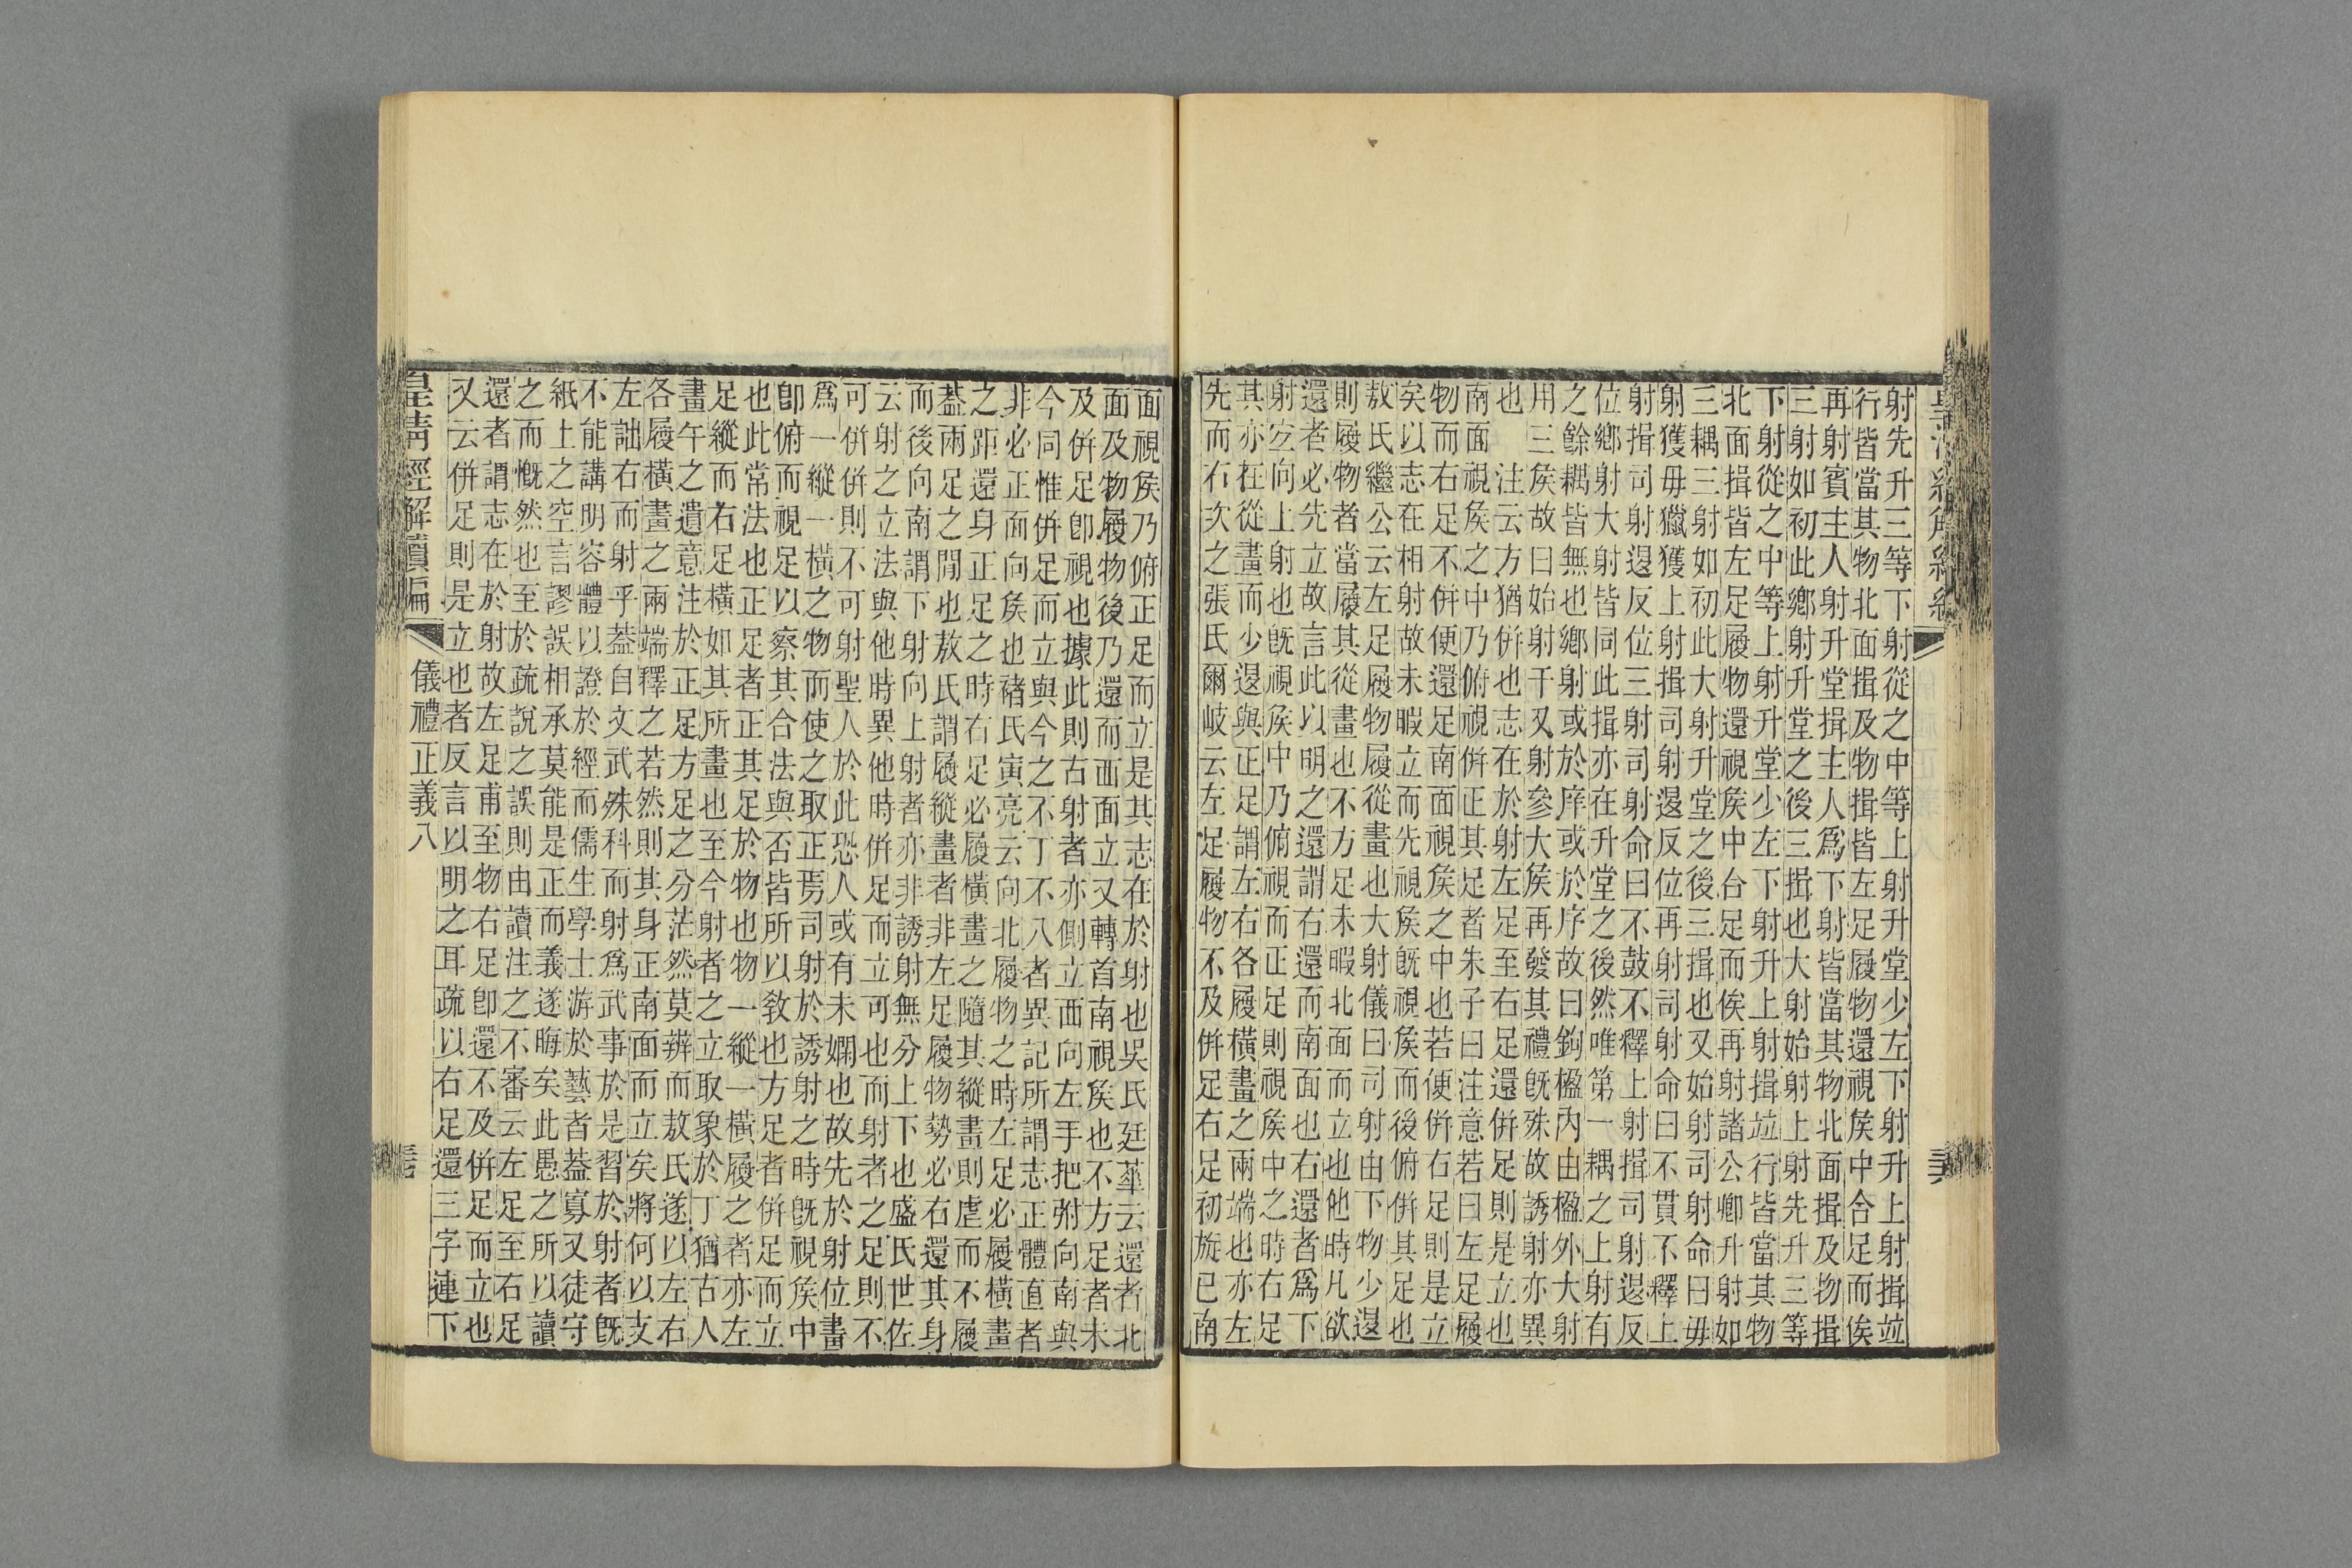 射先升三等下射從之中等上射升堂少左下射升上射揖竝
行皆當其物北面揖及物揖皆左足履物還視矦中合足而俟
再射賓主人射升堂揖主人爲下射皆當其物北面揖及物揖
三射如初此鄉射升堂之後三揖也大射始射上射先升三等
下射從之中等上射升堂少左下射升上射揖竝行皆當其物
北面揖皆左足履物還視矦中台足而俟再射諸公卿升射如
三耦三射如初此大射升堂之後三揖也又始射司射命曰毋
射獲毋獵獲上射揖司射退反位再射司射命曰不貫不釋上
射揖司射退反位三射司射命曰不鼓不釋上射揖司射退反
位鄉射大射皆同此揖亦在升堂之後然唯第一耦之上射有
之餘耦皆無也鄉射或於庠或於序故曰鉤楹內由楹外大射
用三矦故曰始射干又射參大矦再發其禮既殊故誘射亦異
也　注云方猶併也志在於射左足至右足還併足則是立也
南面視矦之中乃俯視併正其足者朱子曰注意若曰左足履
物而右足不併便還足南面視矦之中也若便併右足則是立
矣以志在相射故未暇立而先視矦既視矦而後俯併其足也
敖氏繼公云左足履物履從畫也大射儀曰司射由下物少退
則履物者當履其從畫也不方足未暇北面而立也他時凡欲
還者必先立故言此以明之還謂右還而南面也右還者爲下
射空向上射也既視矦中乃俯視而正足則視矦中之時右足
其亦在從畫而少退與正足謂左右各履橫畫之兩端也亦左
先而右次之張氏爾岐云左足履物不及併足右足初旋已南
面視矦乃俯正足而立是其志在於射也吳氏廷華云還者北
面及物履物後乃還而西面立又轉首南視矦也不方足者未
及併足卽視也據此則右射者亦側立西向左手把弣向南與
今同惟併足而立與今之不丁不八者異記所謂志正體直者
非必正面向矦也褚氏寅亮云向北履物之時左足必履橫畫
之距還身正足之時右足必履橫畫之隨其縱畫則虛而不履
葢兩足之閒也敖氏謂履縱畫者非左足履物勢必右還其身
而後向南謂下射向上射者亦非誘射無分上下也盛氏世佐
云射之立法與他時異他時併足而立可也而射者之足則不
可併併則不可射聖人於此恐人或有未嫺也故先於射位畫
爲一縱一橫之物而使之取正焉司射於誘射之時既視矦中
卽俯而視足以察其合法與否皆所以敎也方足者併足而立
也此常法也正足者正其足於物也物一縱一橫履之者亦左
足縱而右足橫如其所畫也至今射者之立取象於丁猶古人
畫午之遺意注於正足方足之分茫然莫辨而敖氏遂以左右
各履橫畫之兩端釋之若然則其身正南面而立矣將何以支
左詘右而射乎葢自文武殊科而射爲武事於是習於射者既
不能講明容體以證於經而儒生學士游於藝者葢寡又徒守
紙上之空言謬誤相承莫能是正而義遂晦矣此愚之所以讀
之而慨然也至於疏說之誤則由讀注之不審云左足至右足
還者謂志在於射故左足甫至物右足卽還不及併足而立也
又云併足則是立也者反言以明之耳疏以右足還三字連下
皇清經解續編　儀禮正義八